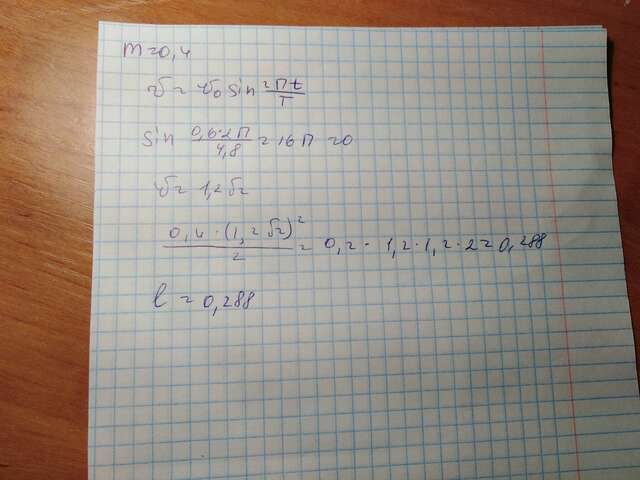 m = 0,4
v = v₀ sin 2πt/T
sin 0,6·2π/4,8 = 16π = 0
v = 1,2√2
0,4 · (1,2√2)²/2 = 0,2 · 1,2 · 1,2 · 2 = 0,288
l = 0,288